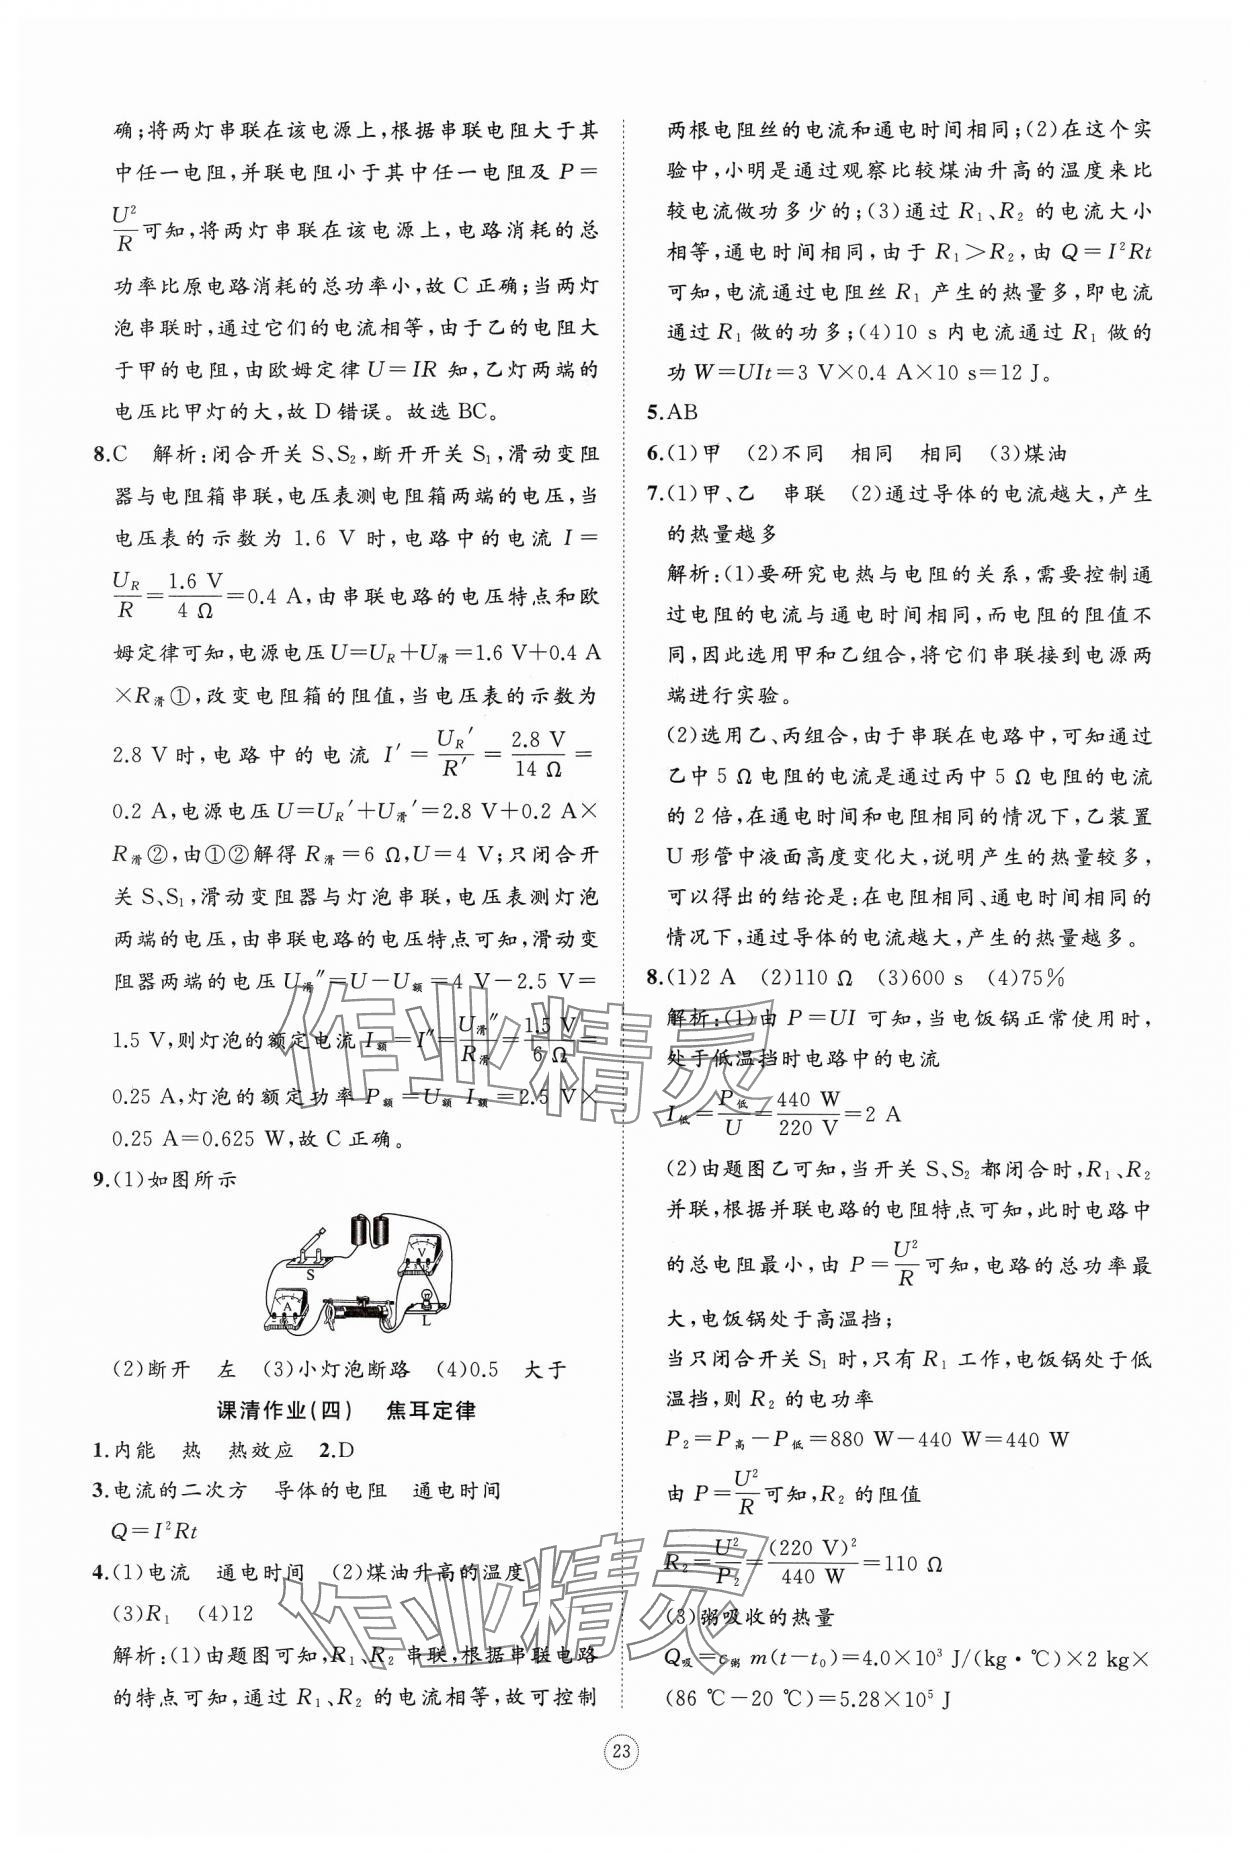 确;将两灯串联在该电源上,根据串联电阻大于其
中任一电阻,并联电阻小于其中任一电阻及 P=
U²/R 可知,将两灯串联在该电源上,电路消耗的总
功率比原电路消耗的总功率小,故 C 正确;当两灯
泡串联时,通过它们的电流相等,由于乙的电阻大
于甲的电阻,由欧姆定律 U=IR 知,乙灯两端的
电压比甲灯的大,故 D 错误。故选 BC。
8.C 解析:闭合开关 S、S₂,断开开关 S₁,滑动变阻
器与电阻箱串联,电压表测电阻箱两端的电压,当
电压表的示数为 1.6 V 时,电路中的电流 I=
U_R/R=1.6 V/4 Ω=0.4 A,由串联电路的电压特点和欧
姆定律可知,电源电压U=U_R+U滑=1.6 V+0.4 A
×R滑①,改变电阻箱的阻值,当电压表的示数为
2.8 V 时,电路中的电流 I′=U_R′/R′=2.8 V/14 Ω=
0.2 A,电源电压 U=U_R′+U滑′=2.8 V+0.2 A×
R滑②,由①②解得 R滑=6 Ω,U=4 V;只闭合开
关 S、S₁,滑动变阻器与灯泡串联,电压表测灯泡
两端的电压,由串联电路的电压特点可知,滑动变
阻器两端的电压 U滑″=U-U额=4 V-2.5 V=
1.5 V,则灯泡的额定电流 I额=I″=U滑″/R滑=1.5 V/6 Ω=
0.25 A,灯泡的额定功率 P额=U额 I额=2.5 V×
0.25 A=0.625 W,故 C 正确。
9.(1)如图所示
S
V
A
L
(2)断开 左 (3)小灯泡断路 (4)0.5 大于
课清作业(四) 焦耳定律
1.内能 热 热效应 2.D
3.电流的二次方 导体的电阻 通电时间
Q=I²Rt
4.(1)电流 通电时间 (2)煤油升高的温度
(3)R₁ (4)12
解析:(1)由题图可知,R₁、R₂ 串联,根据串联电路
的特点可知,通过 R₁、R₂ 的电流相等,故可控制
两根电阻丝的电流和通电时间相同;(2)在这个实
验中,小明是通过观察比较煤油升高的温度来比
较电流做功多少的;(3)通过 R₁、R₂ 的电流大小
相等,通电时间相同,由于 R₁>R₂,由 Q=I²Rt
可知,电流通过电阻丝 R₁ 产生的热量多,即电流
通过 R₁ 做的功多;(4)10 s 内电流通过 R₁ 做的
功 W=UIt=3 V×0.4 A×10 s=12 J。
5.AB
6.(1)甲 (2)不同 相同 相同 (3)煤油
7.(1)甲、乙 串联 (2)通过导体的电流越大,产生
的热量越多
解析:(1)要研究电热与电阻的关系,需要控制通
过电阻的电流与通电时间相同,而电阻的阻值不
同,因此选用甲和乙组合,将它们串联接到电源两
端进行实验。
(2)选用乙、丙组合,由于串联在电路中,可知通过
乙中 5 Ω 电阻的电流是通过丙中 5 Ω 电阻的电流
的 2 倍,在通电时间和电阻相同的情况下,乙装置
U 形管中液面高度变化大,说明产生的热量较多,
可以得出的结论是:在电阻相同、通电时间相同的
情况下,通过导体的电流越大,产生的热量越多。
8.(1)2 A (2)110 Ω (3)600 s (4)75%
解析:(1)由 P=UI 可知,当电饭锅正常使用时,
处于低温挡时电路中的电流
I低=P低/U=440 W/220 V=2 A
(2)由题图乙可知,当开关 S、S₂ 都闭合时,R₁、R₂
并联,根据并联电路的电阻特点可知,此时电路中
的总电阻最小,由 P=U²/R 可知,电路的总功率最
大,电饭锅处于高温挡;
当只闭合开关 S₁ 时,只有 R₁ 工作,电饭锅处于低
温挡,则 R₂ 的电功率
P₂=P高-P低=880 W-440 W=440 W
由 P=U²/R 可知,R₂ 的阻值
R₂=U²/P₂=(220 V)²/440 W=110 Ω
(3)粥吸收的热量
Q吸=c粥 m(t-t₀)=4.0×10³ J/(kg·℃)×2 kg×
(86 ℃-20 ℃)=5.28×10⁵ J
作业精灵
作业精灵
23